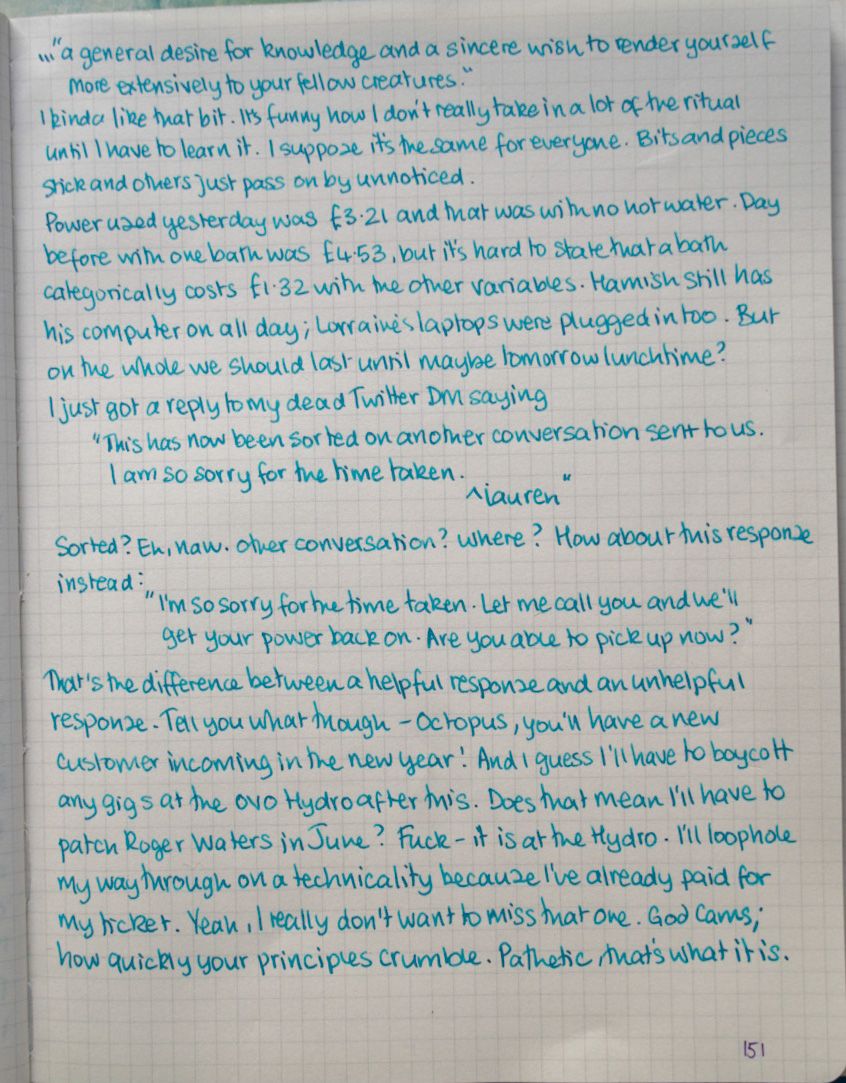 ..."a general desire for knowledge and a sincere wish to render yourself
more extensively to your fellow creatures."
I kinda like that bit. It's funny how I don't really take in a lot of the ritual
until I have to learn it. I suppose it's the same for everyone. Bits and pieces
stick and others just pass on by unnoticed.
Power used yesterday was £3.21 and that was with no hot water. Day
before with one bath was £4.53, but it's hard to state that a bath
categorically costs £1.32 with the other variables. Hamish still has
his computer on all day; Lorraine's laptops were plugged in too. But
on the whole we should last until maybe tomorrow lunchtime?
I just got a reply to my dead Twitter DM saying
"This has now been sorted on another conversation sent to us.
I am so sorry for the time taken.
^Lauren"
Sorted? Eh, naw. Other conversation? Where? How about this response
instead:
"I'm so sorry for the time taken. Let me call you and we'll
get your power back on. Are you able to pick up now?"
That's the difference between a helpful response and an unhelpful
response. Tell you what though - Octopus, you'll have a new
customer incoming in the new year! And I guess I'll have to boycott
any gigs at the OVO Hydro after this. Does that mean I'll have to
patch Roger Waters in June? Fuck - it is at the Hydro. I'll loophole
my way through on a technicality because I've already paid for
my ticket. Yeah, I really don't want to miss that one. God Cams;
how quickly your principles crumble. Pathetic, that's what it is.
151